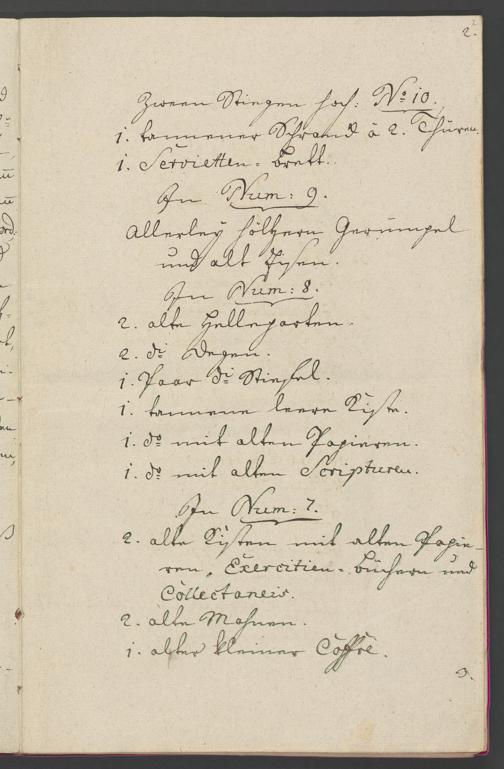 2.
Zween Stiegen hoch: No: 10.
1. tannener Schranck à 2. Thüren.
1. Servietten-brett.
In Num: 9.
Allerley höltzern Gerümpel
und alt Eisen.
In Num: 8.
2. alte Helleparten.
2. do Degen.
1. Paar do Stiefel.
1. tannene leere Kiste.
1. do mit alten Papieren.
1. do mit alten Scripturen.
In Num: 7.
2. alte Kisten mit alten Papie-
ren, Exercitien-büchern und
Collectaneis.
2. alte
1. alter kleiner Coffre.